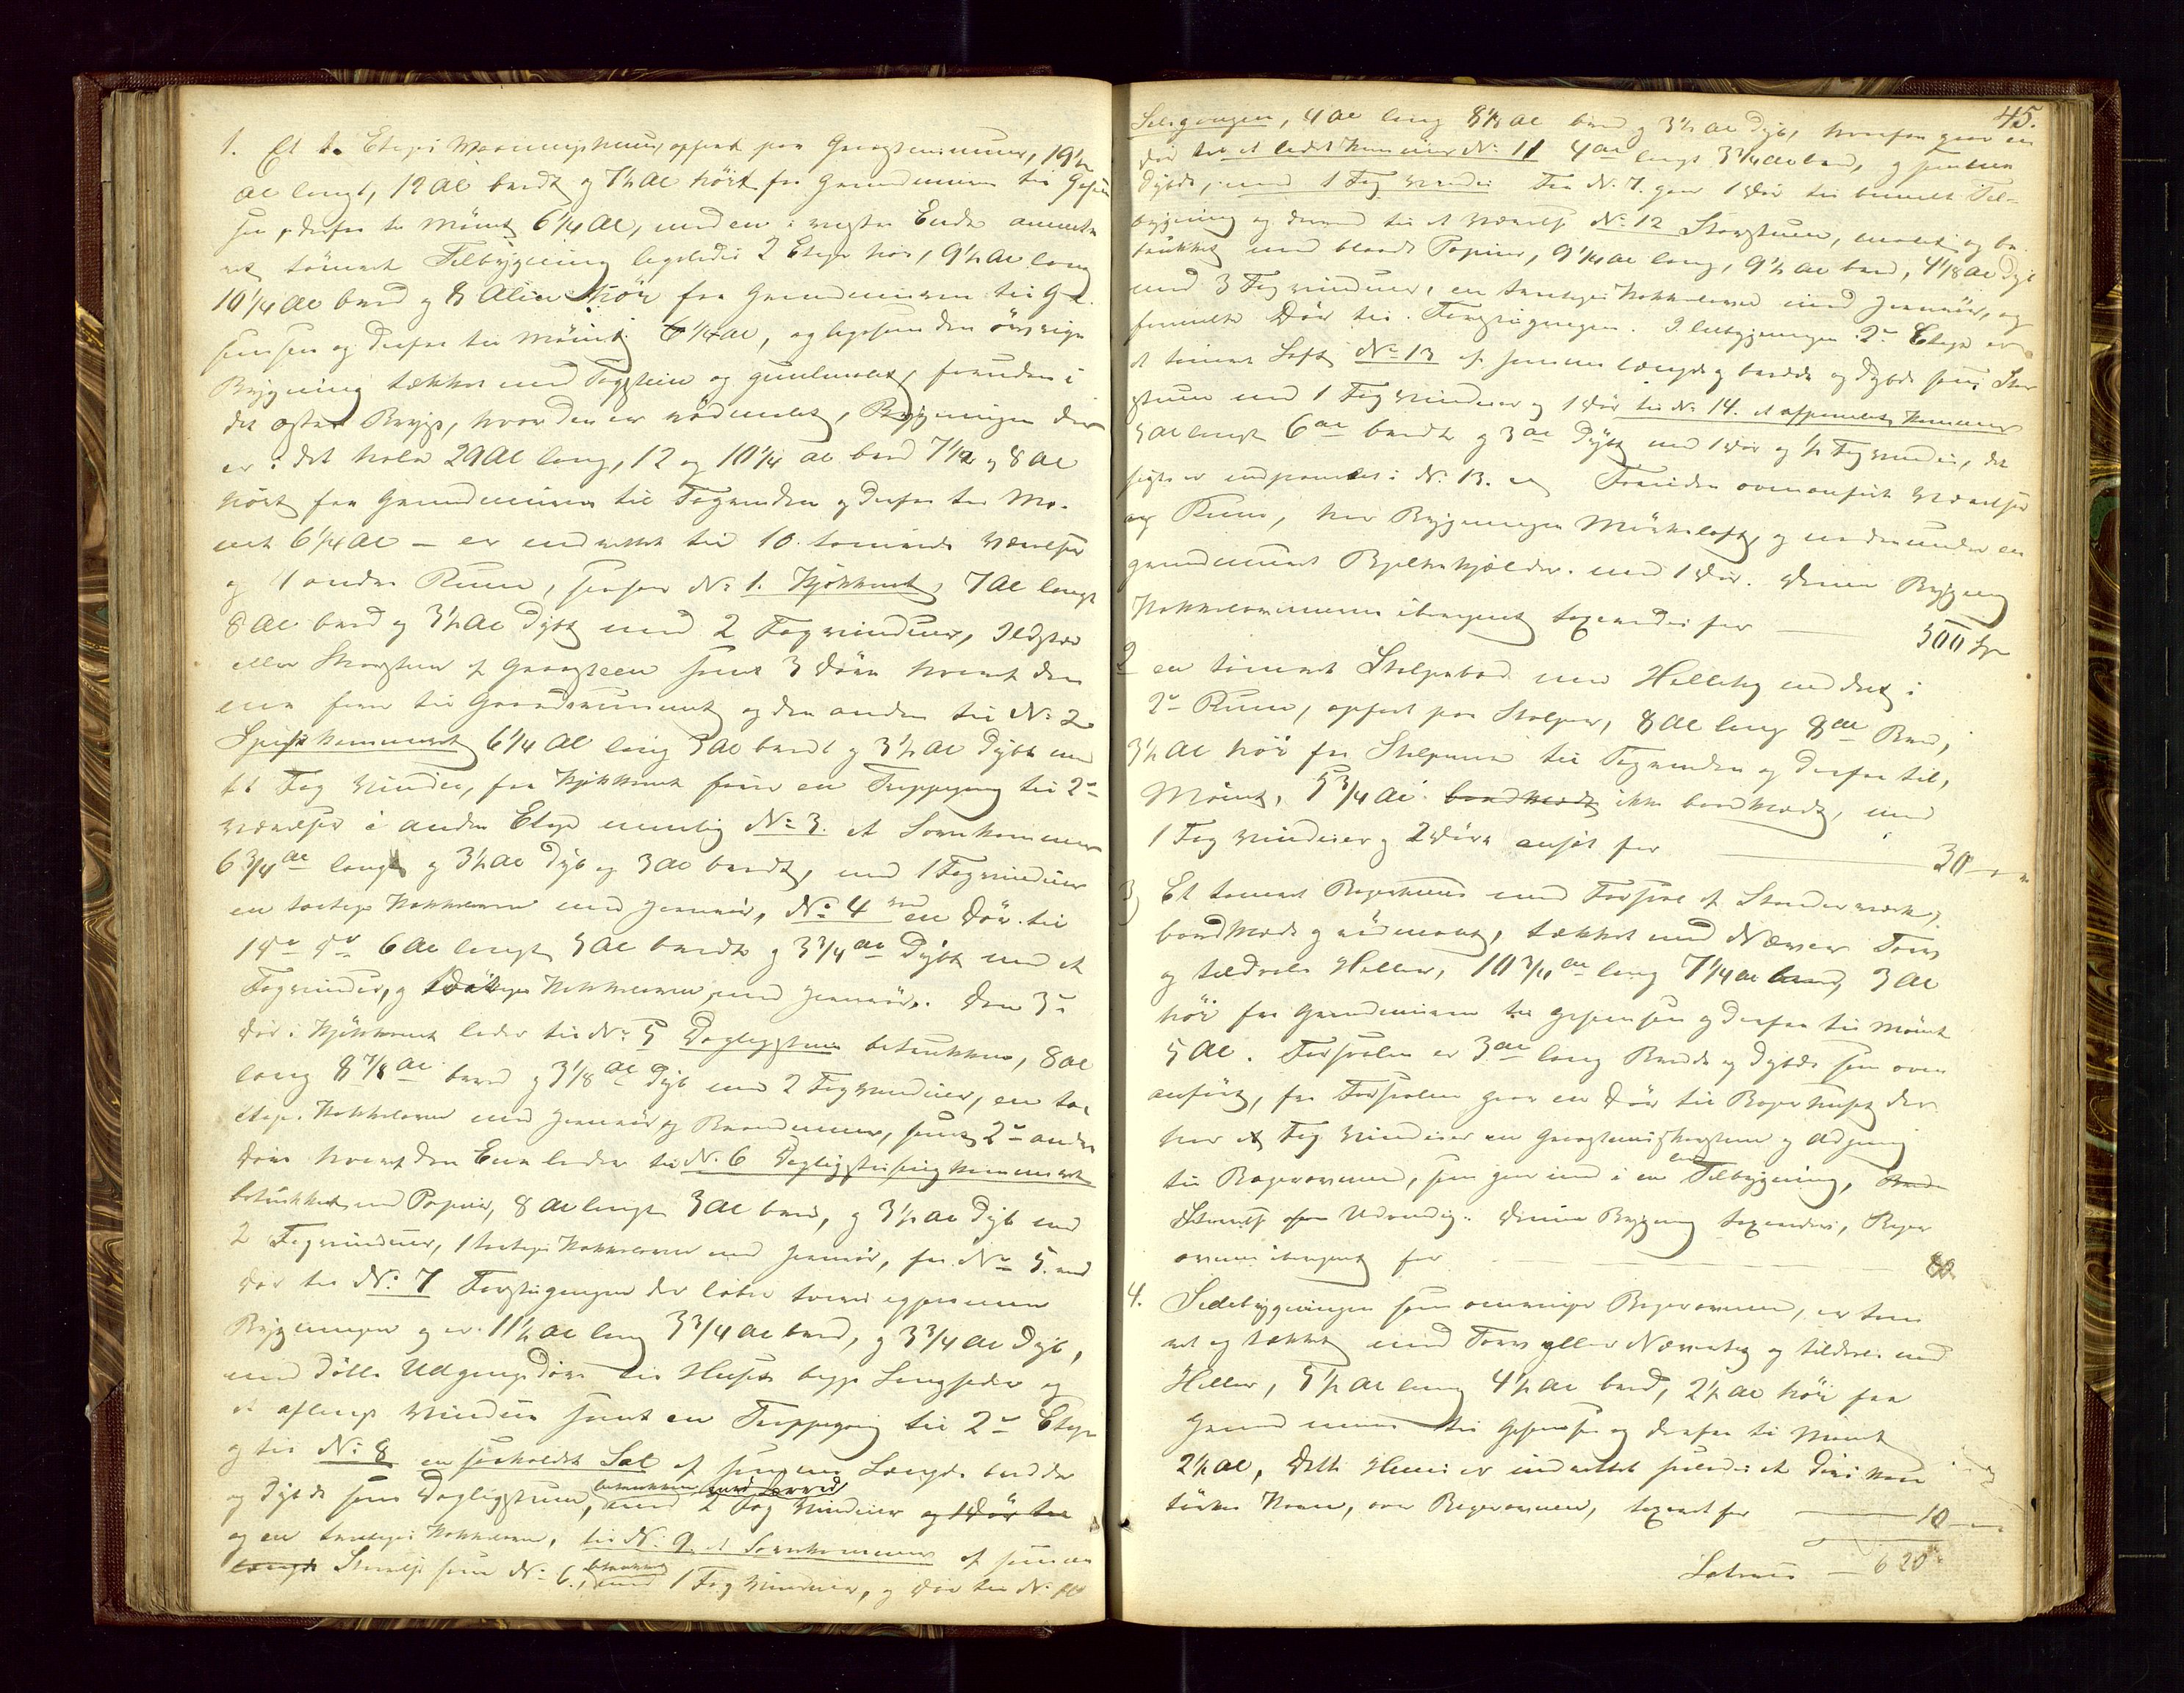 1. Et 2 Etages Vaaningshuus, opført paa Graasteensmuur, 19½
Al langt, 12 Al bredt og 7½ Al høit fra Grundmuren til Gesim
sen, derfra til Mønet 6¼ Al, med en i vestre Ende
tømret Tilbygning ligeledes 2 Etage høi, 9½ Al lang
10¼ Al bred og 8 Alen høi fra Grundmuren til Ge-
simsen og derfra til Mønet 6¼ Al, og ligesom den øvrige
Bygning tækket med Tagsteen og guulmalet, foruden i
det østre Bryst, hvor den er rødmalet, Bygningen der
er i det hele 29 Al lang, 12 og 10¼ Al bred 7½ og 8 Al
høit fra Grundmuren til Tagrenden og derfra til Mø-
net 6¼ Al – er indrettet til 10 tømrede Værelser
og 4 andre Rum, saasom No 1. Kjøkkenet, 7 Al langt
8 Al bred og 3½ Al dybt med 2 Fag vinduer, Ildsted
eller Skorsteen af Graasteen samt 3 Døre hvoraf den
ene fører til Gaardsrummet og den anden til No 2
Spiskammeret 6¼ Al lang 5 Al bredt og 3½ Al dybt med
et Fag Vindue, fra Kjøkkenet fører en Trappegang til 2de
Værelser i anden Etage nemlig No 3. et Sovekammer
6¾ Al langt og 3½ Al dyb og 5 Al bredt, med 1 Fag vinduer
en toetages Kakkelovn med Jernrør, No 4 med en Dør til
1 do do 6 Al langt 5 Al bredt og 3¾ Al dybt med et
Fag vinduer, og toetages Kakkelovn med Jernrør. Den 3die
Dør i Kjøkkenet leder til No 5 Dagligstuen betrukken, 8 Al
lang 8⅞ Al bred og 3⅛ Al dyb med 2 Fag vinduer, en to
etages Kakkelovn med Jernrør og Brandmuur, samt 2de andre
Døre hvoraf den Ene leder til No 6 Dagligstuekammeret
betrukket med Papir, 8 Al langt 5 Al bred, og 3½ Al dyb med
2 Fag vinduer, 1 toetages Kakkelovn med Jernrør, fra No 5. ved
Dør til No 7 Forstuegangen der løber tvers igjennem
Bygningen og er 11½ Al lang 3¾ Al bred, og 3¾ Al dyb,
med dobbelte Udgangsdøre til Husets begge Langsider og
et aflangt Vindue samt en Trappegang til 2den Etage
og til No 8 en saakaldet Sal af samme Længde bredde
og dybde som Dagligstuen, betrukken med Lærred med 2 Fag Vinduer og 1 Dør til
og en toetages Kakkelovn, til No 9 et Sovekammer af samme
længde Størrelse som No 6., betrukket med 1 Fag Vinduer, og Dør til No 10
45.
Salsgangen, 4 Al lang 8⅛ Al bred og 3½ Al dyb, hvorfra gaar en
Dør til et lidet Kammer No 11 4 Al langt 3¾ Al bred, og samme
dybde, med 1 Fag vinduer Fra No 7. gaar 1 Dør til bemeldte Til-
bygning og derved til et Værelse No 12 Storstuen, malet og be-
trukket med blaat Papir, 9¼ Al lang, 9½ Al bred, 4⅛ Al dyb
med 3 Fag vinduer, en toetages Kakkelovn med Jernrør, og
formeldte Dør til Forstuegangen. I Tilbygningens 2den Etage er
et tømret Loft No 13 af samme længde og bredde og dybde som Stor
stuen med 1 Fag Vinduer og 1 Dør til No 14. et afpanelet Kammer
5 Al langt 6 Al bredt og 3 Al dybt med 1 Dør og ½ Fag Vinduer, det
sidste er indpanelet i No 13. Foruden ovenanførte Værelser
og Rum, har Bygningen Mørkeloft, og nedenunder en
grundmuret Bjelkekjælder med 1 Dør. Denne Bygning
Kakkelovnene iberegnet taxeredes for — 500 Sp
2 en tømret Stolpebod med Helletag inddeelt i
2de Rum, opført paa Stolper, 8 Al lang 8 Al Bred,
3½ Al høi fra Stolperne til Tagrenden og derfra til,
Mønet, 5¾ Al bordklædt ikke bordklædt, med
1 Fag vinduer og 2 Døre ansat for — 30 — "
3) Et tømret Bagerhuus med Forsval af Standerværk,
bordklædt og rødmalet, tækket med Næver Torv
og tildeels Heller, 10¾ Al lang 7¼ Al bred, 3 Al
høi fra Grundmuren til Gesimsen og derfra til Mønet
5 Al. Forsvalen er 3 Al lang Bredde og dybde som oven
anført, fra Forsvalen gaar en Dør til Bagerhuset der
har et Fag Vinduer en Graasteensskorsteen og Adgang
til Bagerovnen, som gaar ind i en Tilbygning,
Udvendig. Denne Bygning taxeredes, Bager
ovnen iberegnet for — 80
4. Sidebygningen som omringer Bagerovnen, er tøm
ret og tækket med Torv og eller Nævertag og tildeels med
Heller, 5½ Al lang 4½ Al bred, 2½ Al høi fra
Grundmuren til Gesimsen og derfra til Mønet
2½ Al, dette Huus er indrettet
tørke Korn, over Bagerovnen, taxeret for — 10 —
Latus — 620